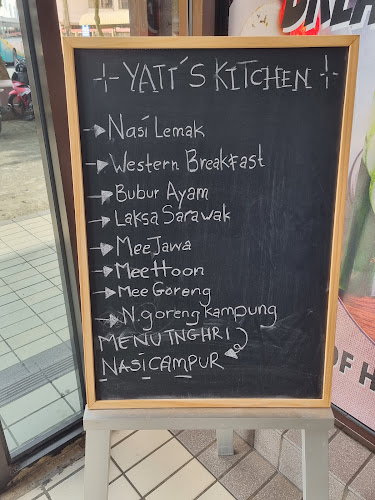 YATI'S KITCHEN
Nasi Lemak
Western Breakfast
Bubur Ayam
Laksa Sarawak
Mee Jawa
Mee Hoon
Mee Goreng
N.goreng kampung
MENU TNGHRI
NASI CAMPUR
OF H